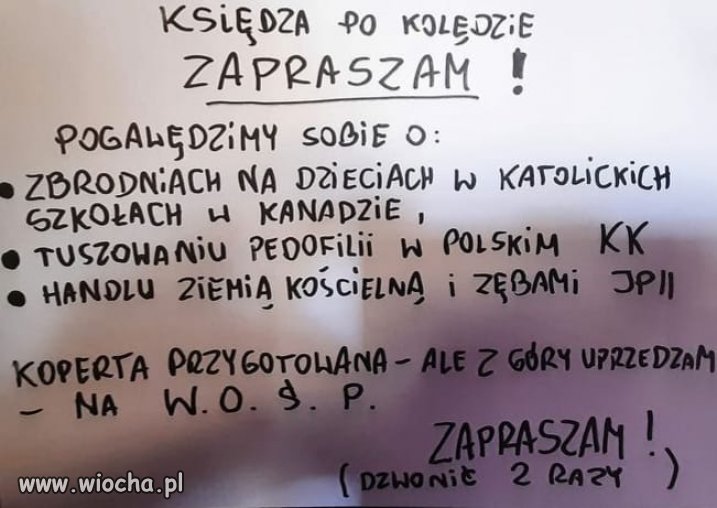 KSIĘDZA PO KOLĘDZIE
ZAPRASZAM !
POGAWĘDZIMY SOBIE O:
• ZBRODNIACH NA DZIECIACH W KATOLICKICH
SZKOŁACH W KANADZIE,
• TUSZOWANIU PEDOFILII W POLSKIM KK
• HANDLU ZIEMIĄ KOŚCIELNĄ i ZĘBAMI JPII
KOPERTA PRZYGOTOWANA - ALE Z GÓRY UPRZEDZAM
- NA W.O.Ś.P.
ZAPRASZAM!
(DZWONIĆ 2 RAZY)
www.wiocha.pl